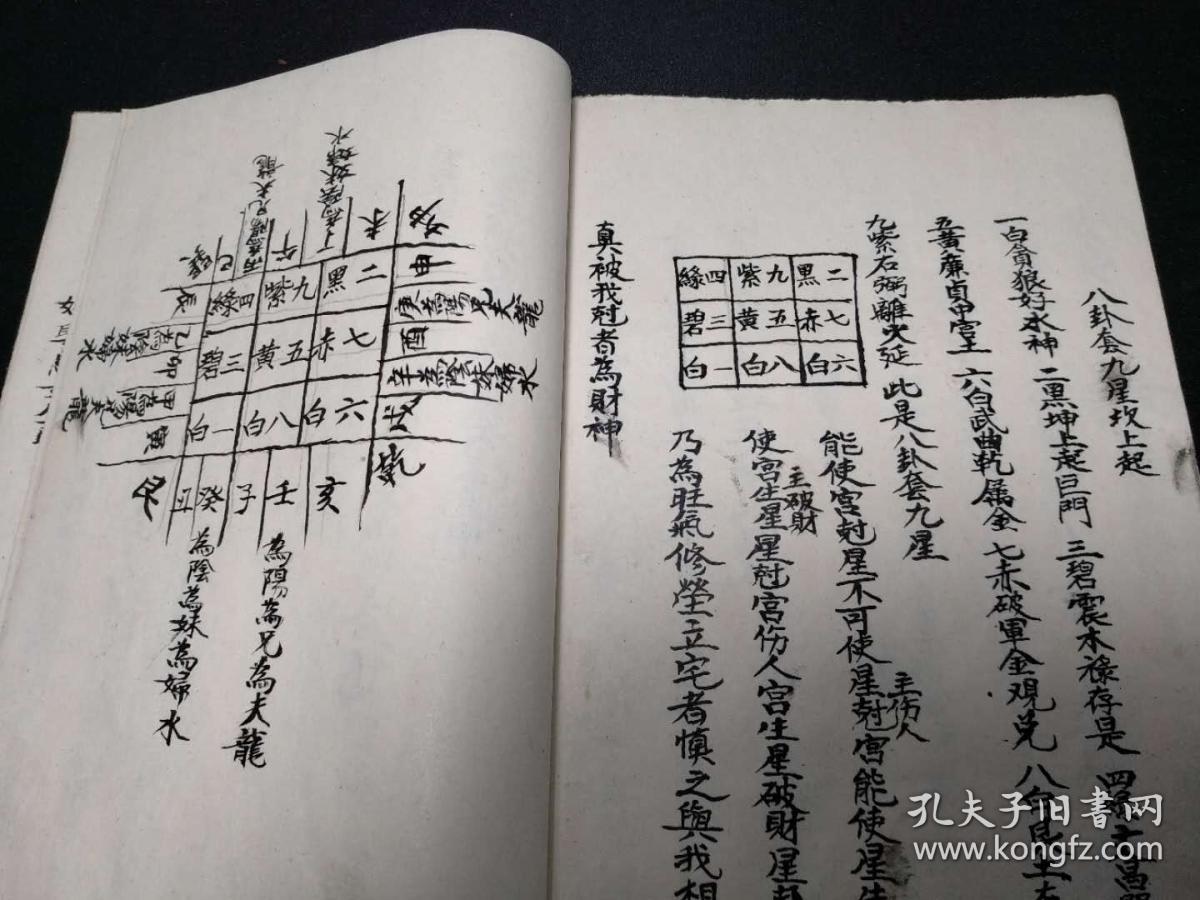 八卦套九星坎上起
一白貪狼好水神 二黑坤上起巨門 三碧震木祿存是
五黃廉貞中宮主 六白武曲乾属金 七赤破軍金現兌
九紫右弼離火延 此是八卦套九星
緣四 紫九 黑二
碧三 黃五 赤七
白一 白八 白六
能使宮尅星不可使星尅宮能使星生
主伤人
使宮生星星尅宮伤人宮生星破財星
主破財
乃為旺氣修塋立宅者慎之與我相
真被我尅者為財神
未 丁為陰妹婦水
午
丙為陽兄夫龍
巳
辰
緣四 紫九 黑二
碧三 黃五 赤七
白一 白八 白六
申
庚為陽兄夫龍
酉
辛為陰妹婦水
戌
乾
卯
寅
艮
丑 癸 子 壬 亥
為陽為兄為夫龍
為陰為妹為婦水
孔夫子旧書网
www.kongfz.com